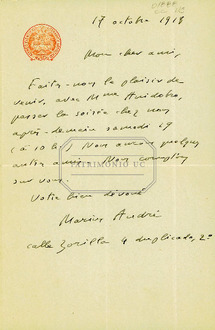 17 octobre 1918
Mon cher ami,
Faites-nous le plaisir de
venir, avec Mme Huidobro,
passer la soirée chez nous
après-demain samedi 19
(à 10 h.) Nous aurons quelques
autres amis. Nous comptons
sur vous.
Votre bien dévoué
Marius André
calle Zorilla 4 duplicado, 2º
PATRIMONIO UC